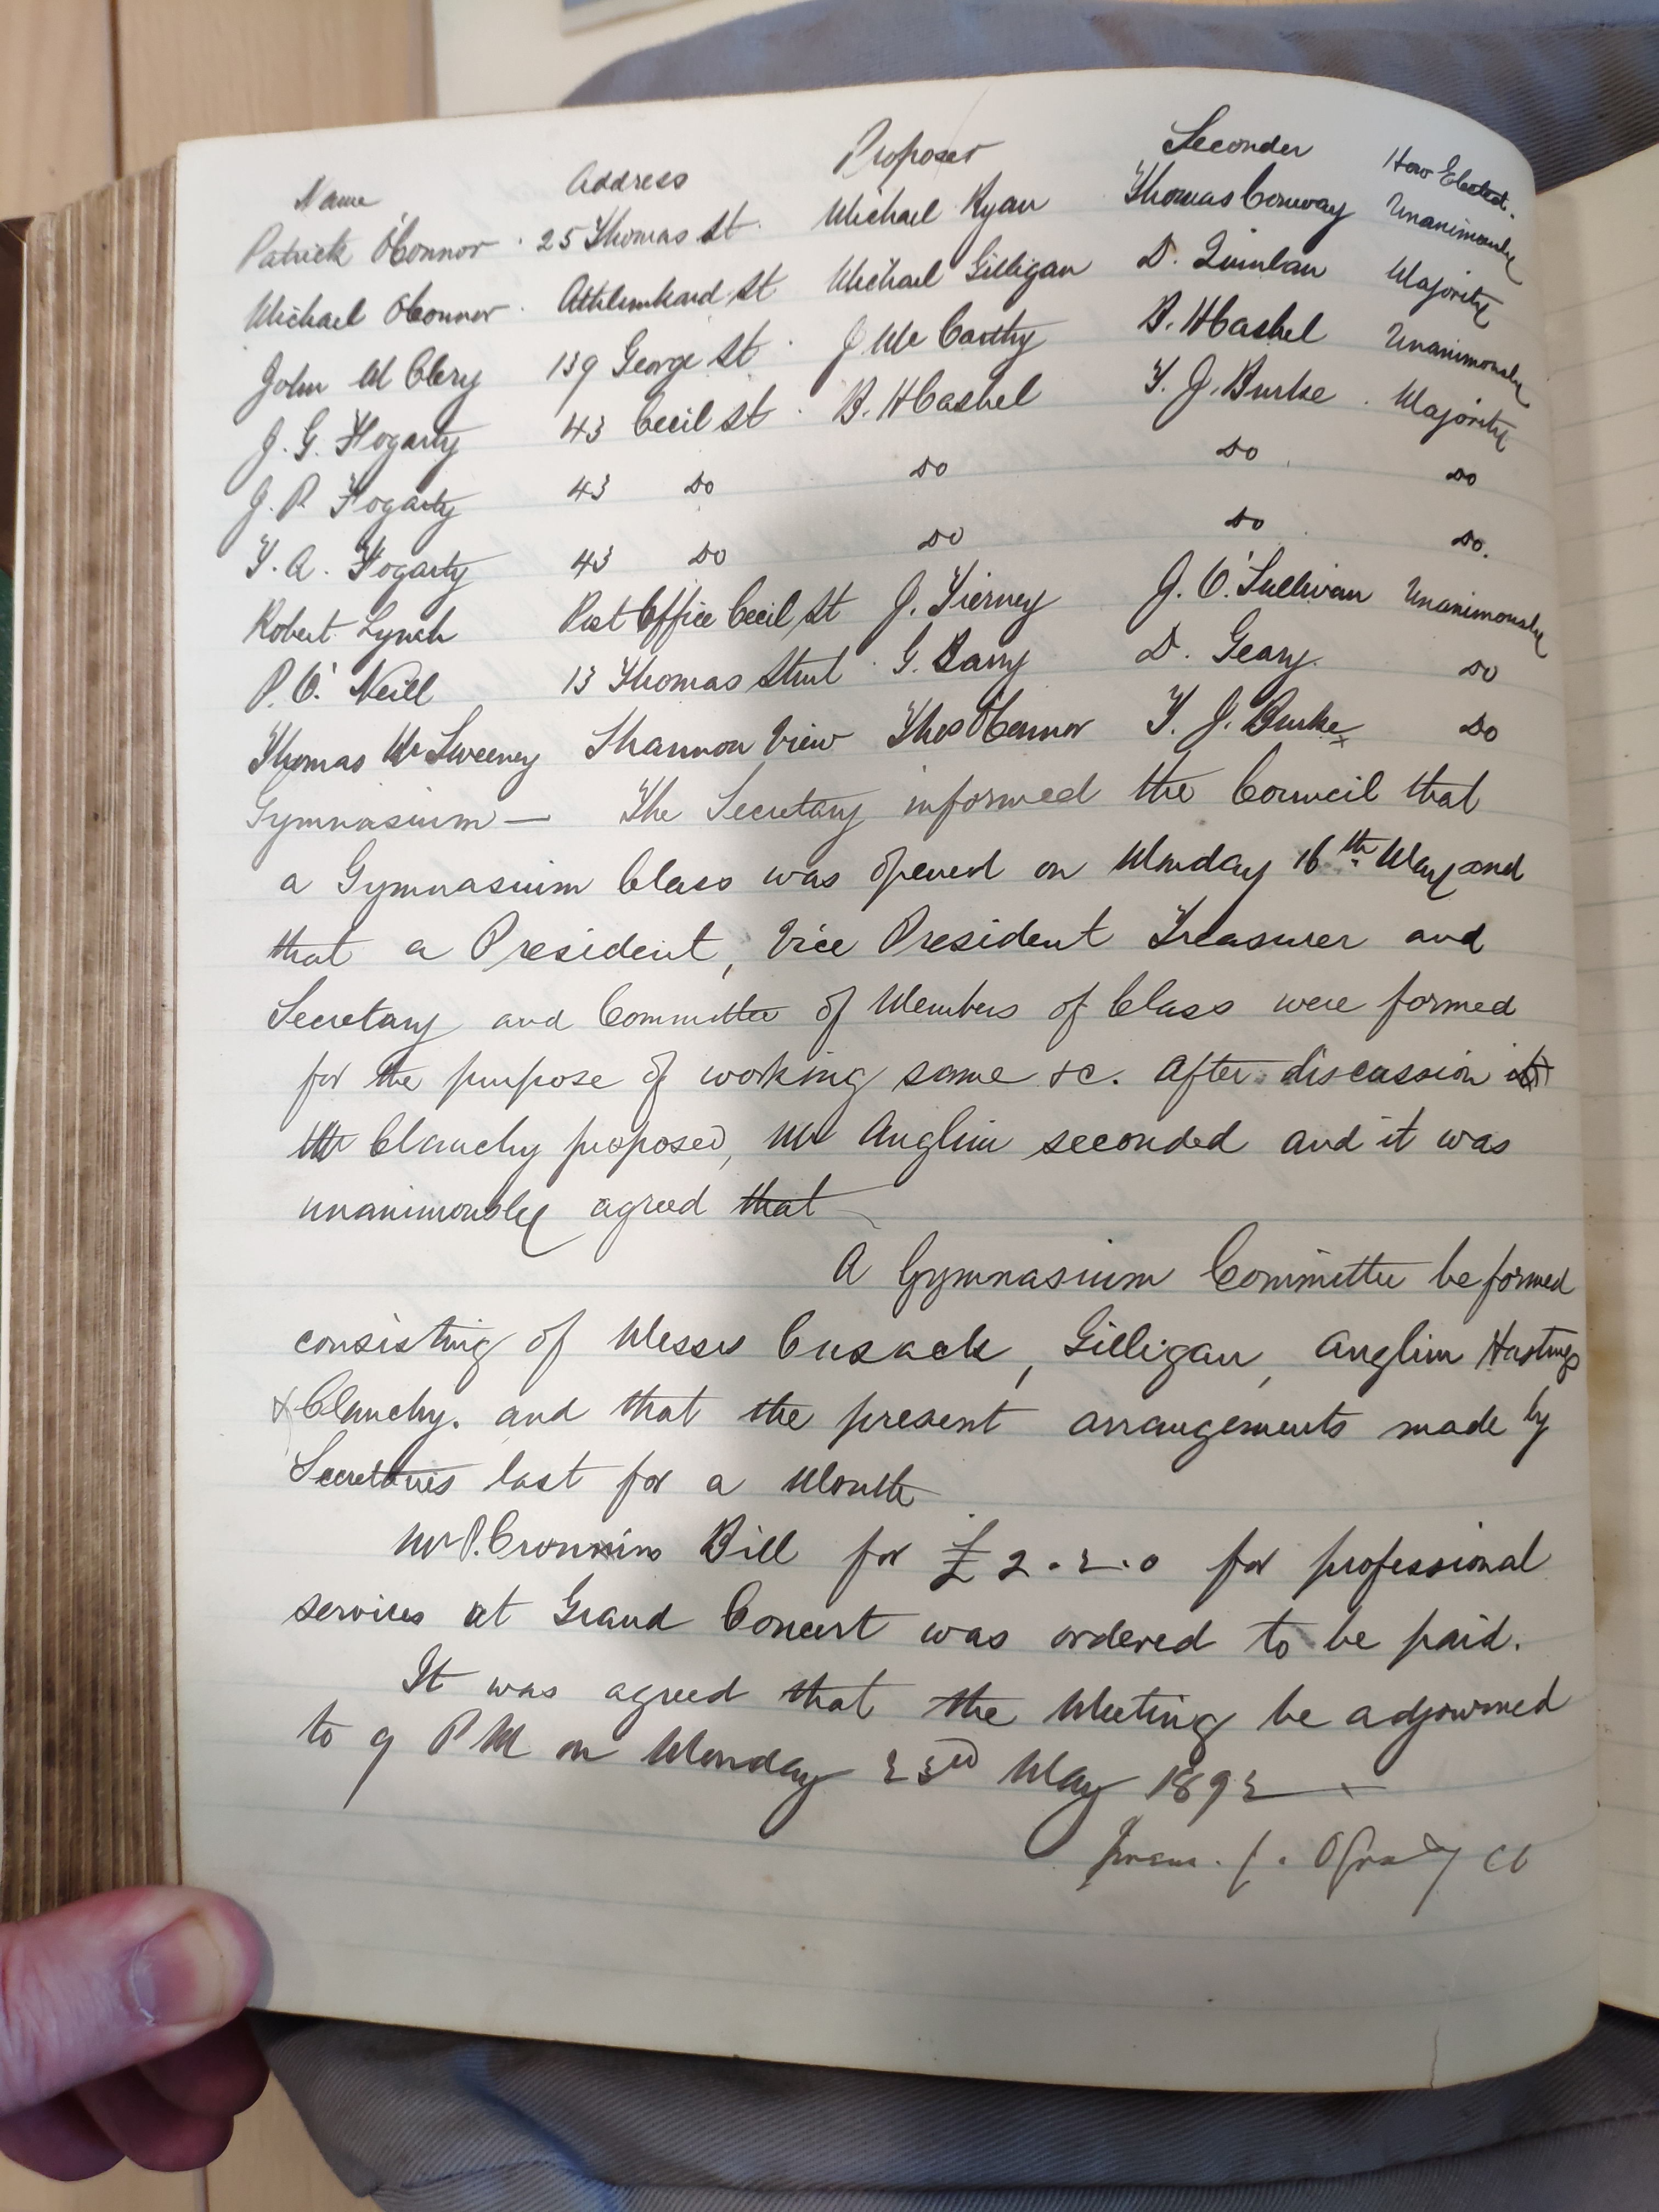 Name Address Proposer Seconder How Elected.
Patrick O'Connor 25 Thomas St Michael Ryan Thomas Conway Unanimously
Michael O'Connor Athlunkard St Michael Gilligan D. Quinlan Majority
John M Clery 139 George St J McCarthy B. H Cashel Unanimously
J. G. Fogarty 43 Cecil St B. H Cashel T. J. Burke Majority
J. P. Fogarty 43 Do Do Do Do
T. A. Fogarty 43 Do Do Do Do.
Robert Lynch Post Office Cecil St J. Tierney J. O'Sullivan Unanimously
P. O'Neill 13 Thomas Street G. Barry D. Geary. Do
Thomas McSweeney Shannon View Thos O'Connor T. J. Burke Do
Gymnasium — The Secretary informed the Council that
a Gymnasium Class was opened on Monday 16th May and
that a President, Vice President Treasurer and
Secretary and Committee of Members of Class were formed
for the purpose of working same &c. After discussion
Mr Clanchy proposed, Mr Anglim seconded and it was
unanimously agreed that
A Gymnasium Committee be formed
consisting of Messrs Cusack, Gilligan, Anglim Hastings
& Clanchy. and that the present arrangements made by
Secretaries last for a Month
Mr P. Cronnins Bill for £2.2.0 for professional
services at Grand Concert was ordered to be paid.
It was agreed that the Meeting be adjourned
to 9 PM on Monday 23rd May 1892